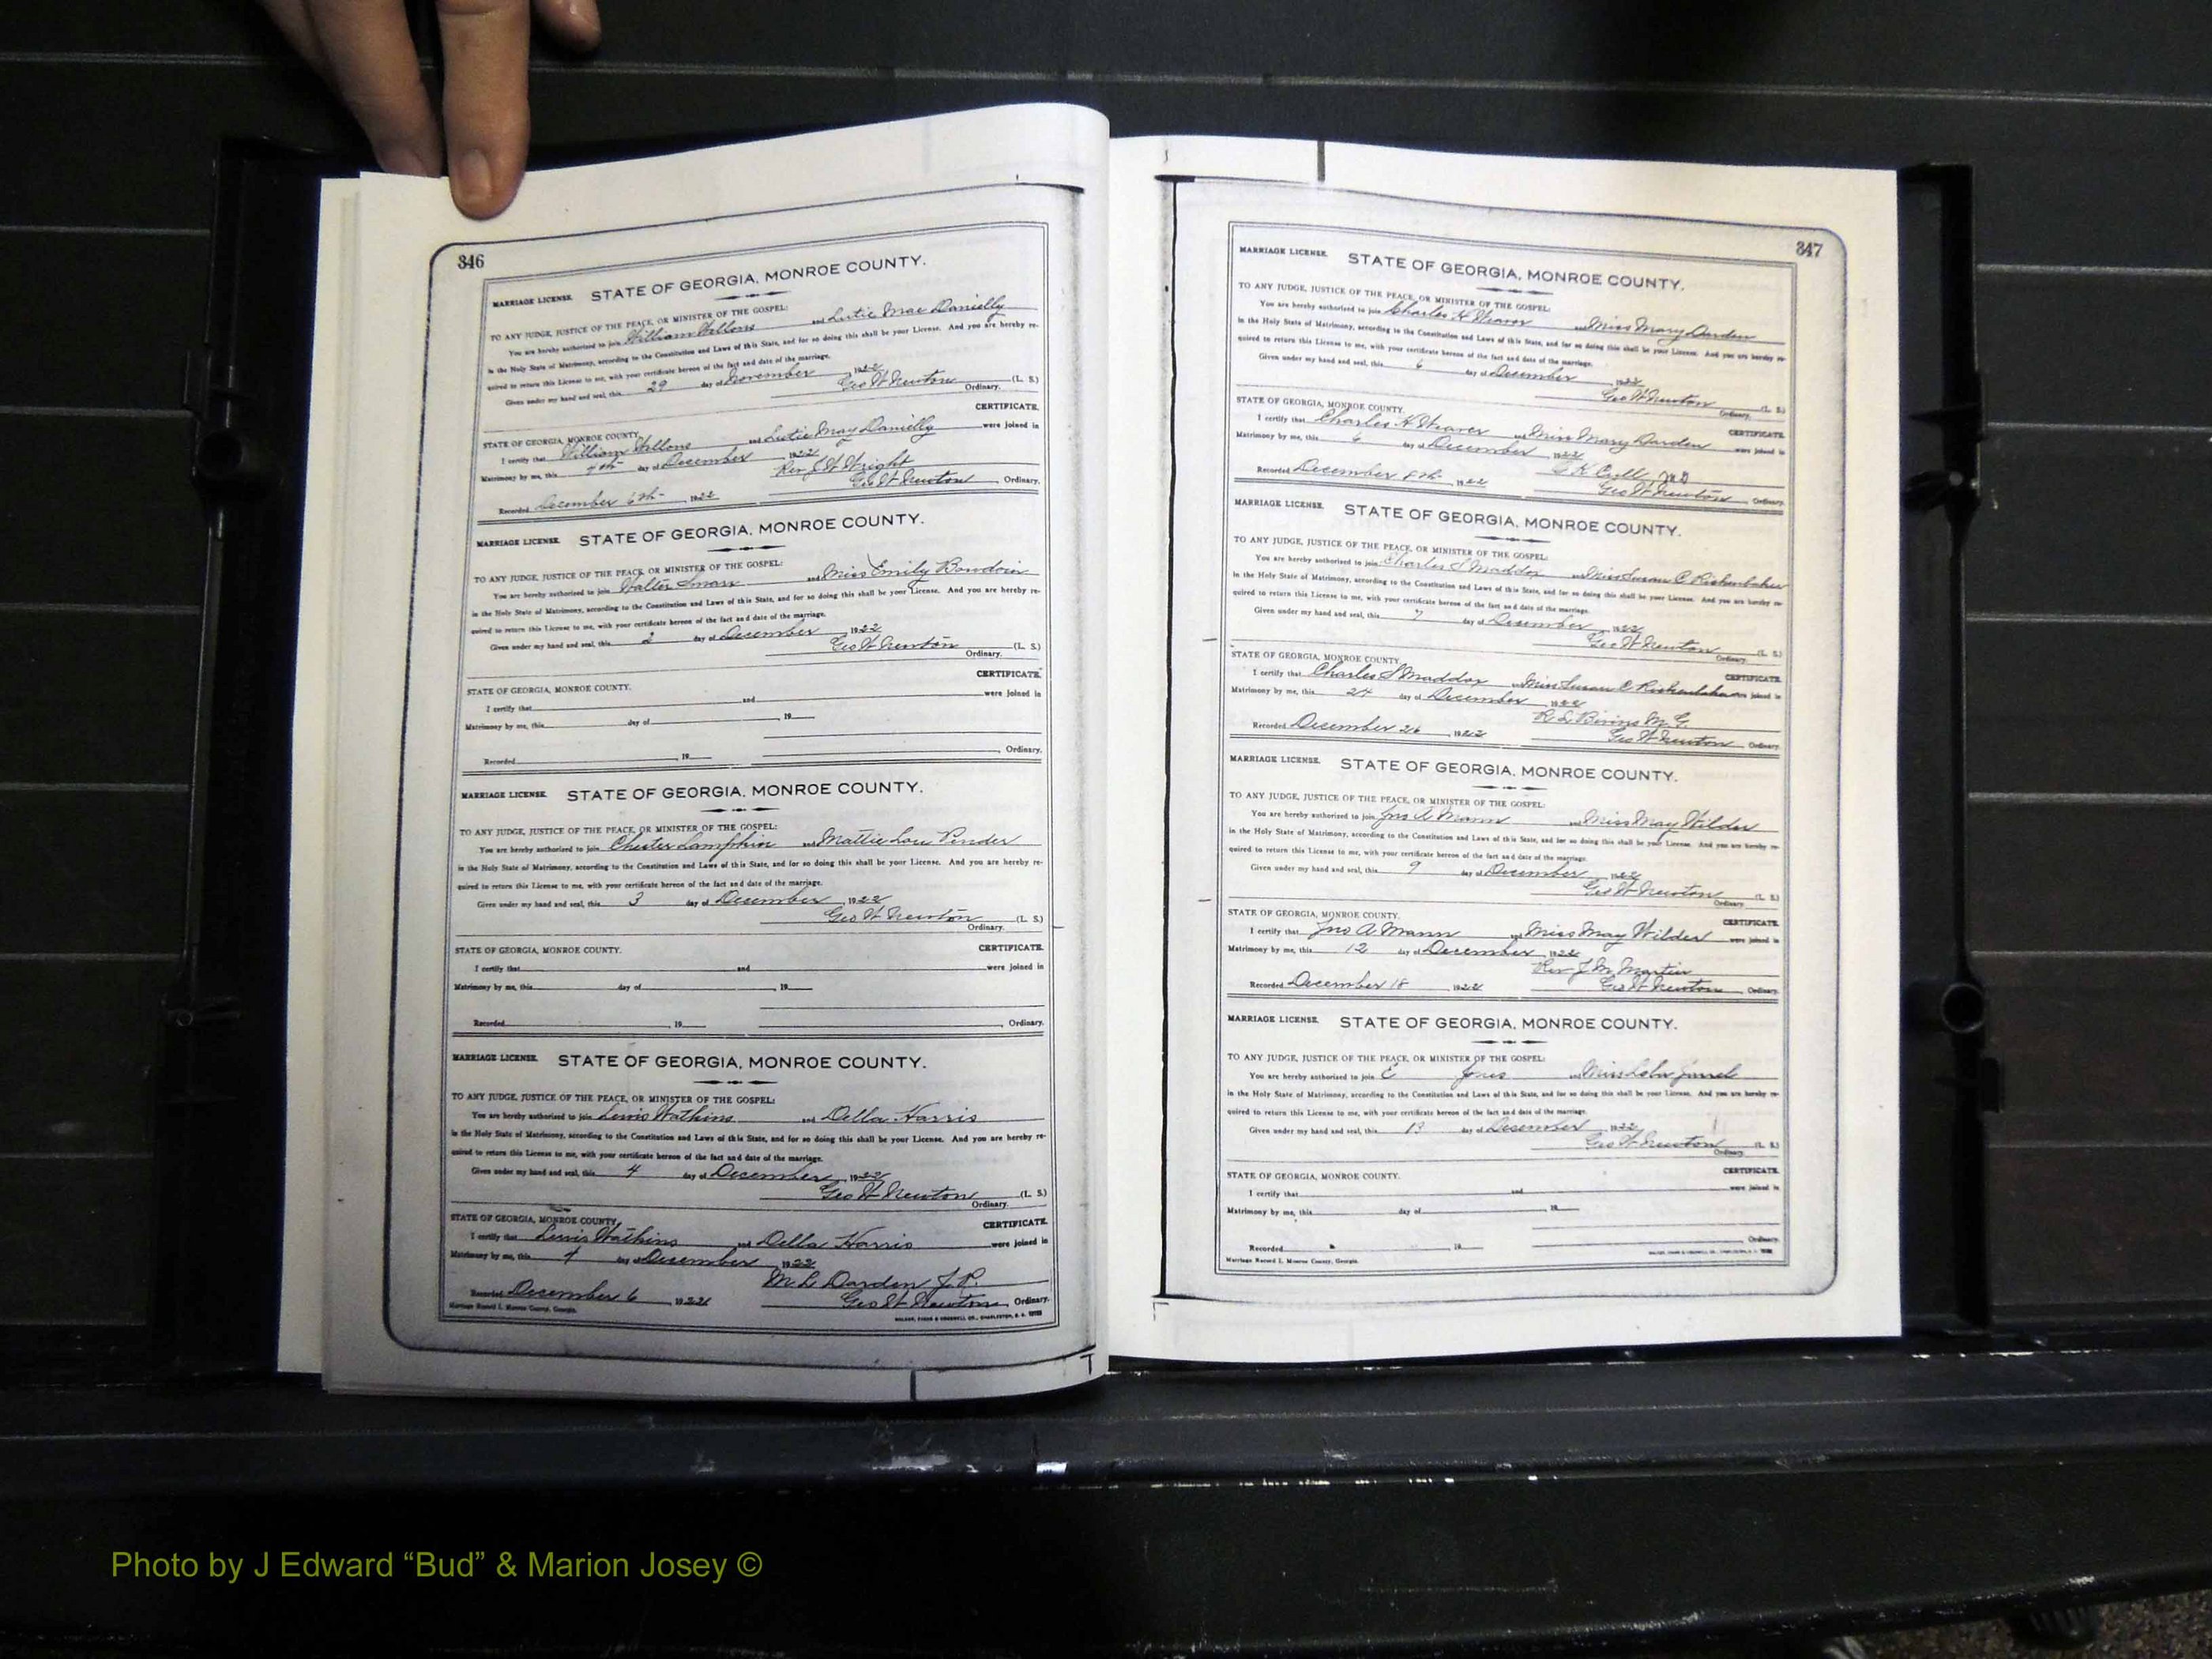 346
MARRIAGE LICENSE. STATE OF GEORGIA, MONROE COUNTY.
TO ANY JUDGE, JUSTICE OF THE PEACE, OR MINISTER OF THE GOSPEL:
You are hereby authorized to join William and Lutie Mae Danielly
in the Holy State of Matrimony, according to the Constitution and Laws of this State, and for so doing this shall be your License. And you are hereby re-
quired to return this License to me, with your certificate hereon of the fact and date of the marriage.
Given under my hand and seal, this 29 day of November, 1922
Geo W Newton (L. S.)
Ordinary.
CERTIFICATE.
STATE OF GEORGIA, MONROE COUNTY.
I certify that William and Lutie May Danielly were joined in
Matrimony by me, this 4th day of December, 1922
Rev J W Wright
Recorded December 6th 1922 Geo W Newton, Ordinary.
MARRIAGE LICENSE. STATE OF GEORGIA, MONROE COUNTY.
TO ANY JUDGE, JUSTICE OF THE PEACE, OR MINISTER OF THE GOSPEL:
You are hereby authorized to join Walter and Miss Emily Bowdoin
in the Holy State of Matrimony, according to the Constitution and Laws of this State, and for so doing this shall be your License. And you are hereby re-
quired to return this License to me, with your certificate hereon of the fact and date of the marriage.
Given under my hand and seal, this 2 day of December, 1922
Geo W Newton (L. S.)
Ordinary.
CERTIFICATE.
STATE OF GEORGIA, MONROE COUNTY.
I certify that and were joined in
Matrimony by me, this day of , 19
Recorded , 19 , Ordinary.
MARRIAGE LICENSE. STATE OF GEORGIA, MONROE COUNTY.
TO ANY JUDGE, JUSTICE OF THE PEACE, OR MINISTER OF THE GOSPEL:
You are hereby authorized to join Chester Lampkin and Mattie Lou Pinder
in the Holy State of Matrimony, according to the Constitution and Laws of this State, and for so doing this shall be your License. And you are hereby re-
quired to return this License to me, with your certificate hereon of the fact and date of the marriage.
Given under my hand and seal, this 3 day of December, 1922
Geo W Newton (L. S.)
Ordinary.
STATE OF GEORGIA, MONROE COUNTY. CERTIFICATE.
I certify that and were joined in
Matrimony by me, this day of , 19
Recorded , 19 , Ordinary.
MARRIAGE LICENSE. STATE OF GEORGIA, MONROE COUNTY.
TO ANY JUDGE, JUSTICE OF THE PEACE, OR MINISTER OF THE GOSPEL:
You are hereby authorized to join Lewis Watkins and Della Harris
in the Holy State of Matrimony, according to the Constitution and Laws of this State, and for so doing this shall be your License. And you are hereby re-
quired to return this License to me, with your certificate hereon of the fact and date of the marriage.
Given under my hand and seal, this 4 day of December, 1922
Geo W Newton (L. S.)
Ordinary.
STATE OF GEORGIA, MONROE COUNTY. CERTIFICATE.
I certify that Lewis Watkins and Della Harris were joined in
Matrimony by me, this 4 day of December 1922
M L Darden J.P.
Recorded December 6, 1922 Geo W Newton, Ordinary.
Marriage Record I, Monroe County, Georgia. WALKER, EVANS & COGSWELL CO., CHARLESTON, S. C.
347
MARRIAGE LICENSE. STATE OF GEORGIA, MONROE COUNTY.
TO ANY JUDGE, JUSTICE OF THE PEACE, OR MINISTER OF THE GOSPEL:
You are hereby authorized to join Charles H Weaver and Miss Mary Darden
in the Holy State of Matrimony, according to the Constitution and Laws of this State, and for so doing this shall be your License. And you are hereby re-
quired to return this License to me, with your certificate hereon of the fact and date of the marriage.
Given under my hand and seal, this 6 day of December, 1922
Geo W Newton (L. S.)
Ordinary.
STATE OF GEORGIA, MONROE COUNTY. CERTIFICATE.
I certify that Charles H Weaver and Miss Mary Darden were joined in
Matrimony by me, this 6 day of December, 1922
Recorded December 8th, 1922 Geo W Newton, Ordinary.
MARRIAGE LICENSE. STATE OF GEORGIA, MONROE COUNTY.
TO ANY JUDGE, JUSTICE OF THE PEACE, OR MINISTER OF THE GOSPEL:
You are hereby authorized to join Charles S Maddox and Miss Susan C
in the Holy State of Matrimony, according to the Constitution and Laws of this State, and for so doing this shall be your License. And you are hereby re-
quired to return this License to me, with your certificate hereon of the fact and date of the marriage.
Given under my hand and seal, this 7 day of December, 1922
Geo W Newton (L. S.)
Ordinary.
STATE OF GEORGIA, MONROE COUNTY. CERTIFICATE.
I certify that Charles S Maddox and Miss Susan C were joined in
Matrimony by me, this 24 day of December, 1922
R. L. Bivins M. G.
Recorded December 26, 1922 Geo W Newton, Ordinary.
MARRIAGE LICENSE. STATE OF GEORGIA, MONROE COUNTY.
TO ANY JUDGE, JUSTICE OF THE PEACE, OR MINISTER OF THE GOSPEL:
You are hereby authorized to join Jno A Mann and Miss May Wilder
in the Holy State of Matrimony, according to the Constitution and Laws of this State, and for so doing this shall be your License. And you are hereby re-
quired to return this License to me, with your certificate hereon of the fact and date of the marriage.
Given under my hand and seal, this 9 day of December, 1922
Geo W Newton (L. S.)
Ordinary.
STATE OF GEORGIA, MONROE COUNTY. CERTIFICATE.
I certify that Jno A Mann and Miss May Wilder were joined in
Matrimony by me, this 12 day of December, 1922
Rev J M Martin
Recorded December 18, 1922 Geo W Newton, Ordinary.
MARRIAGE LICENSE. STATE OF GEORGIA, MONROE COUNTY.
TO ANY JUDGE, JUSTICE OF THE PEACE, OR MINISTER OF THE GOSPEL:
You are hereby authorized to join E Jones and Miss
in the Holy State of Matrimony, according to the Constitution and Laws of this State, and for so doing this shall be your License. And you are hereby re-
quired to return this License to me, with your certificate hereon of the fact and date of the marriage.
Given under my hand and seal, this 13 day of December, 1922
Geo W Newton (L. S.)
Ordinary.
STATE OF GEORGIA, MONROE COUNTY. CERTIFICATE.
I certify that and were joined in
Matrimony by me, this day of , 19
Recorded , 19 , Ordinary.
Marriage Record I, Monroe County, Georgia. WALKER, EVANS & COGSWELL CO., CHARLESTON, S. C.
Photo by J Edward “Bud” & Marion Josey ©